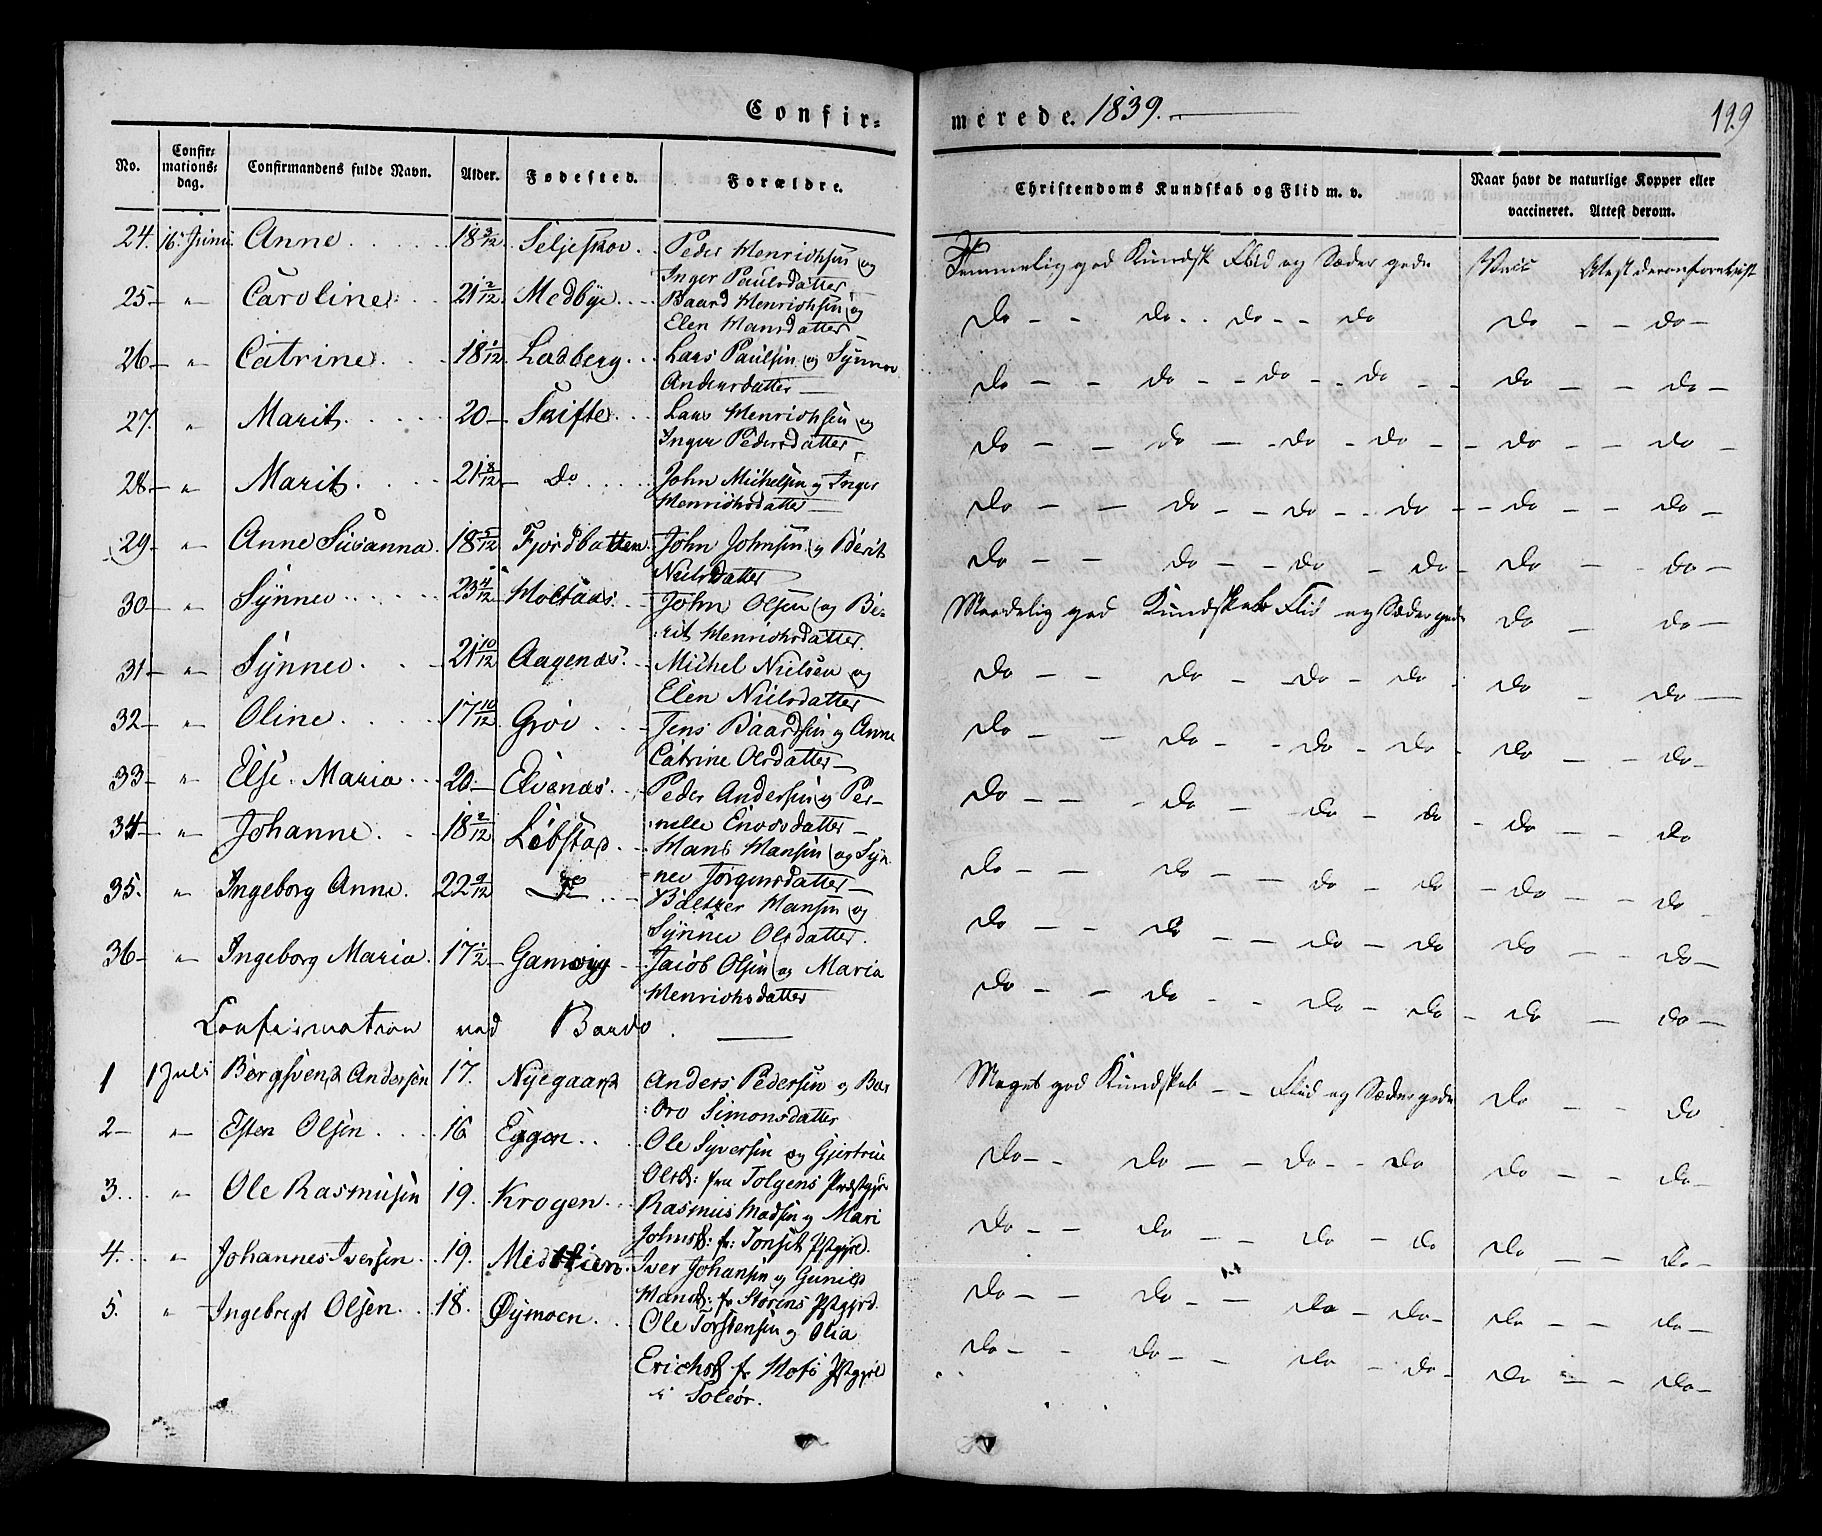 Confir-
merede. 1839.
199
No.
Confir-
mations-
dag.
Confirmandens fulde Navn.
Alder.
Fødested.
Forældre.
Christendoms Kundskab og Flid m. v.
Naar havt de naturlige Kopper eller
vaccineret. Attest derom.
24. 16. Junii Anne 18 9/12 Seljeskov Peder Henrichsen og
Inger Paulsdatter
Temmelig god Kundsk Flid og Sæder gode Vacc Attest derom foreviist
25 " Caroline 21 2/12 Medbye Baard Henrichsen og
Elen Hansdatter
Do Do Do Do Do Do
26 " Catrine 18 1/12 Ladberg Lars Paulsen og Synnev
Andersdatter
Do Do Do Do Do Do
27. " Marit 20 Skifte Lars Henrichsen og
Inger Pedersdatter
Do Do Do Do Do Do
28 " Marit 21 8/12 Do John Michelsen og Inger
Henrichsdatter
Do Do Do Do Do Do
29 " Anne Susanna 18 5/12 Fjordbotten John Johnsen og Berit
Nielsdatter
Do Do Do Do Do Do
30 " Synnev 23 4/12 Holtaas John Olsen og Be-
rit Henrichsdatter
Maadelig god Kundskab Flid og Sæder gode Do Do
31 " Synnev 21 10/12 Aagenæs Michel Nielsen og
Elen Nielsdatter
Do Do Do Do Do Do
32 " Oline 17 10/12 Grov Jens Baardsen og Anne
Catrine Olsdatter
Do Do Do Do Do Do
33 " Else Maria 20 Elvenæs Peder Andersen og Per-
nelle Enocsdatter
Do Do Do Do Do Do
34 " Johanne 18 2/12 Løbstad Hans Hansen og Syn
nev Jørgensdatter
Do Do Do Do Do Do
35. " Ingeborg Anne 22 9/12 Do Baltzer Hansen og
Synnev Olsdatter
Do Do Do Do Do Do
36 " Ingeborg Maria 17 1/2 Gamvig Jacob Olsen og Maria
Henrichsdatter
Do Do Do Do Do Do
Confirmation ved Bardo
1 1 Juli Børgsvend Andersen 17. Nyegaard Anders Pedersen og Bar
bro Simonsdatter
Meget god Kundskab Flid og Sæder gode Do Do
2 " Esten Olsen 16 Eggen Ole Syversen og Gjertrue
Olsd: fra Tolgens Præstgjæ
Do Do Do Do Do Do
3. " Ole Rasmusen 19. Krogen Rasmus Madsen og Mari
Johnsd: fr: Tønset Pstgjeld.
Do Do Do Do Do Do
4. " Johannes Iversen 19. Iver Johansen og Gunild
Hansd: fr Storens Pstgjeld.
Do Do Do Do Do Do
5. " Ingebrigt Olsen 18. Øymoen Ole Torstensen og Olia
Erichsd fr Hofs Pstgjeld
i Soleør.
Do Do Do Do Do Do